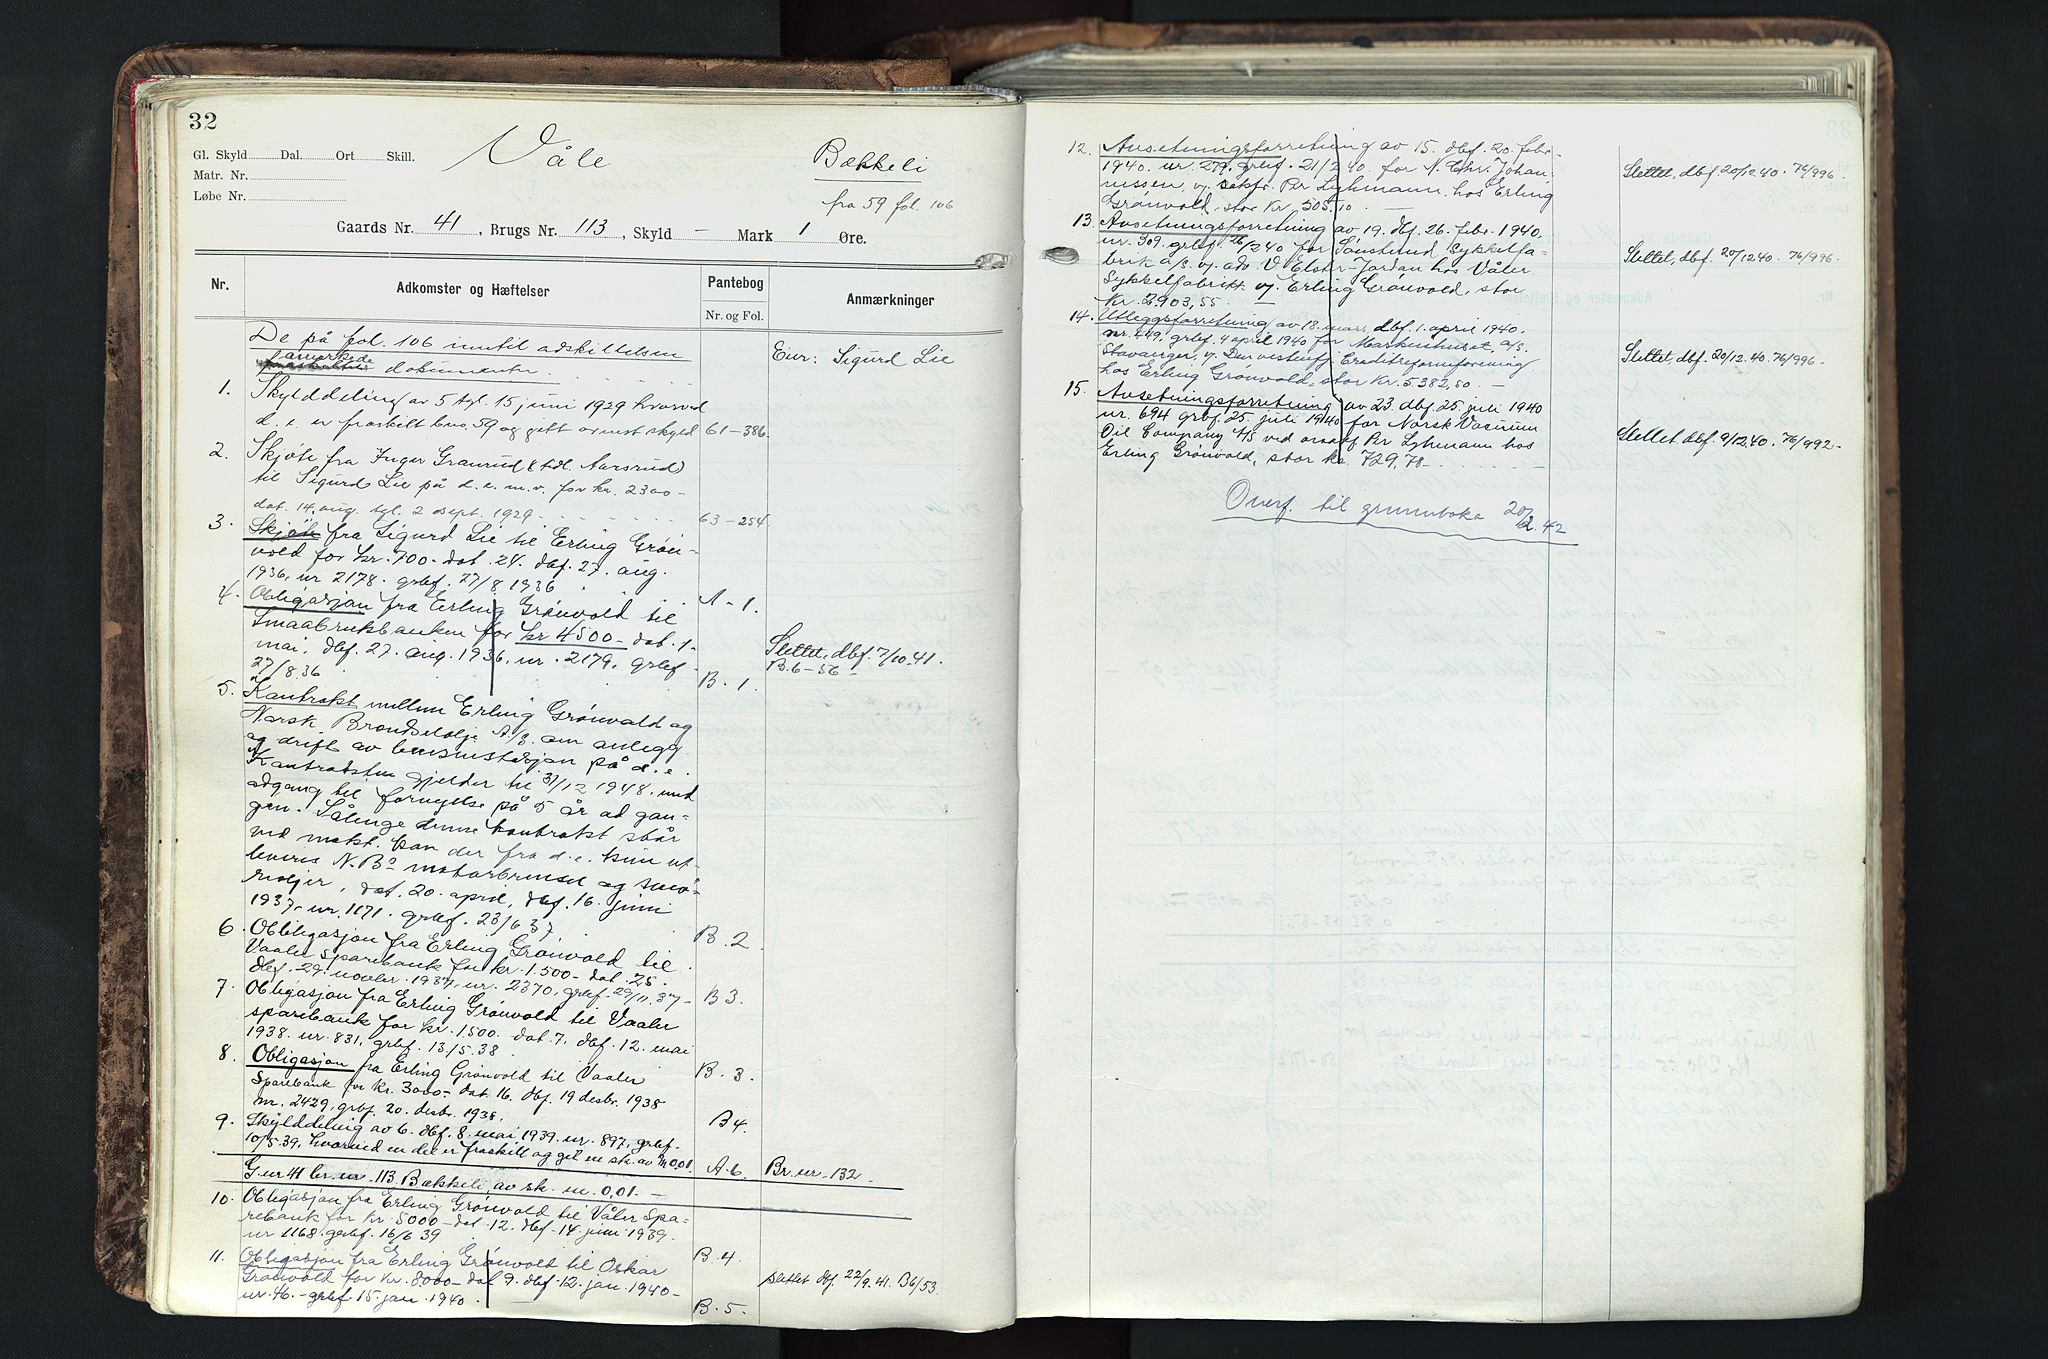 32
Gl. Skyld Dal. Ort Skill.
Matr. Nr.
Løbe Nr.
Våle
Bækkeli
fra 59 fol. 106
Gaards Nr. 41, Brugs Nr. 113, Skyld – Mark 1 Øre.
Nr.
Adkomster og Hæftelser
Pantebog
Nr. og Fol.
Anmærkninger
De på fol. 106 inntil adskillelsen
anmerkede
dokumenter.
Eier: Sigurd Lie
1. Skylddeling av 5 tgl. 15 juni 1929 hvorved
d. e. er fraskilt bno. 59 og gitt ovenst. skyld 61–386.
2. Skjøte fra Inger Granrud (tidl. Aarsrud)
til Sigurd Lie på d. e. m. v. for kr. 2300–
dat. 14. aug. tgl. 2 sept. 1929. 63–254.
3. Skjøte fra Sigurd Lie til Erling Grøn-
vold for kr. 700– dat. 24. dbf. 27. aug.
1936, nr 2178. grbf. 27/8 1936 A–1.
4. Obligasjon fra Erling Grønvold til
Smaabrukbanken for kr 4500– dat. 1.
mai, dbf. 27. aug. 1936, nr. 2179, grbf
27/8.36 B–1.
Slettet, dbf. 7/10.41.
B.6–56
5. Kontrakt mellem Erling Grønvold og
Norsk Brændselolje A/S. om anlegg
og drift av bensinstasjon på d. e.
Kontrakten gjelder til 31/12 1948. med
adgang til fornyelse på 5 år ad gan-
gen. Sålenge denne kontrakt står
ved makt, kan der fra d. e. kun ut-
leveres N.Bs motorbrensel og smø-
reoljer, dat. 20. april, dbf. 16. juni
1937, nr. 1171. grbf. 23/6 37 B.2
6. Obligasjon fra Erling Grønvold til
Vaaler Sparebank for kr. 1.500– dat. 25.
dbf. 29. novbr. 1937, nr. 2370, grbf. 29/11.37– B 3.
7. Obligasjon fra Erling Grønvold til Vaaler
sparebank for kr. 1500. dat. 7. dbf. 12. mai
1938. nr. 831, grbf. 13/5.38 B. 3.
8. Obligasjon fra Erling Grønvold til Vaaler
Sparebank for kr. 3000– dat. 16. dbf. 19 desbr. 1938
nr. 2429, grbf. 20. desbr. 1938. B 4.
9. Skylddeling av 6. dbf. 8. mai 1939. nr. 897, grbf.
10/5.39, hvorved en del er fraskilt og git en sk. av m 0,01. A.6. Br. nr. 132.
G.nr 41 br. nr. 113 Bækkeli, av sk. m. 0,01. –
10. Obligasjon fra Erling Grønvold til Våler Spa-
rebank for kr. 5000– dat. 12. dbf. 14 juni 1939.
nr 1168. grbf. 16/6 39 B.4.
11. Obligasjon fra Erling Grønvold til Oskar
Grønvold for kr. 8000– dat 9. dbf. 12. jan. 1940–
nr. 46. – grbf 15. jan. 1940. B.5.
slettet dbf. 22/9.41. B6/53
12. Avsetningsforretning av 15. dbf. 20. febr.
1940. nr. 279. grbf. 21/2 40. for N. Chr. Johan-
nissen, v. sakf. Per Lyhmann, hos Erling
Grønvold, stor Kr. 505,10 –
Slettet, dbf. 20/12.40. 76/996.
13. Avsetningsforretning av 19. dbf. 26. febr. 1940.
nr. 309. grbf. 26/2 40 for Sønstelund Sykkelfa-
brik a/s. v. adv. V. Elster-Jordan hos Våler
Sykkelfabrikk v. Erling Grønvold, stor
Kr. 2.903,55. –
Slettet, dbf. 20/12.40. 76/996.
14. Utleggsforretning av 18. mars, dbf. 1. april 1940.
nr. 449. grbf. 4 april 1940 for Maskinhuset, a/s.
Stavanger, v. Den vestenfj. Creditreformforening
hos Erling Grønvold, stor Kr. 5382,50. –
Slettet, dbf. 20/12.40. 76/996–
15. Avsetningsforretning av 23. dbf. 25. juli 1940
nr. 694 grbf. 25. juli 1940 for Norsk Vacuum
Oil Company A/S ved orsakf Per Lyhmann hos
Erling Grønvold, stor kr. 729,78–
Slettet dbf. 9/12.40. 76/992–
Overf. til grunnboka 20/2.42